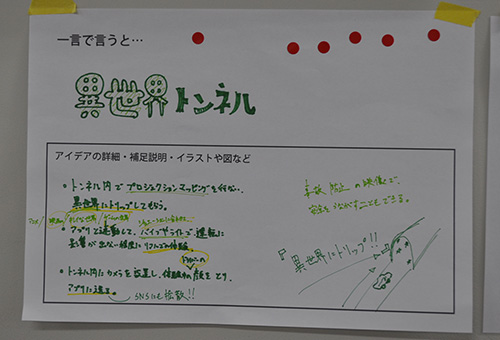 一言で言うと…
異世界トンネル
アイデアの詳細・補足説明・イラストや図など
・トンネル内でプロジェクションマッピングを行ない、
異世界にトリップしてもらう。
・アプリと連動して、バイブやライトで、運転に
影響が出ない程度にリアルでの体験。
・トンネル内にカメラを設置し、体験中の顔をとり、
アプリに送る。
SNSにも拡散!!
の映像で、
をうながすこともできる。
『異世界にトリップ!!